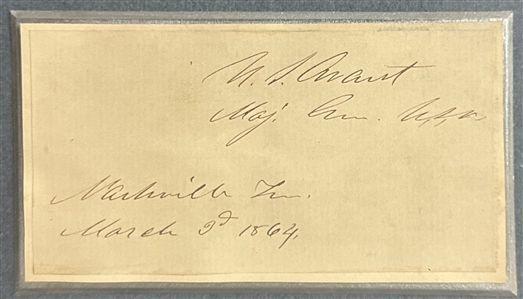 U. S. Grant
Maj. Gen. U.S.A.
Nashville Ten.
March 3d 1864.